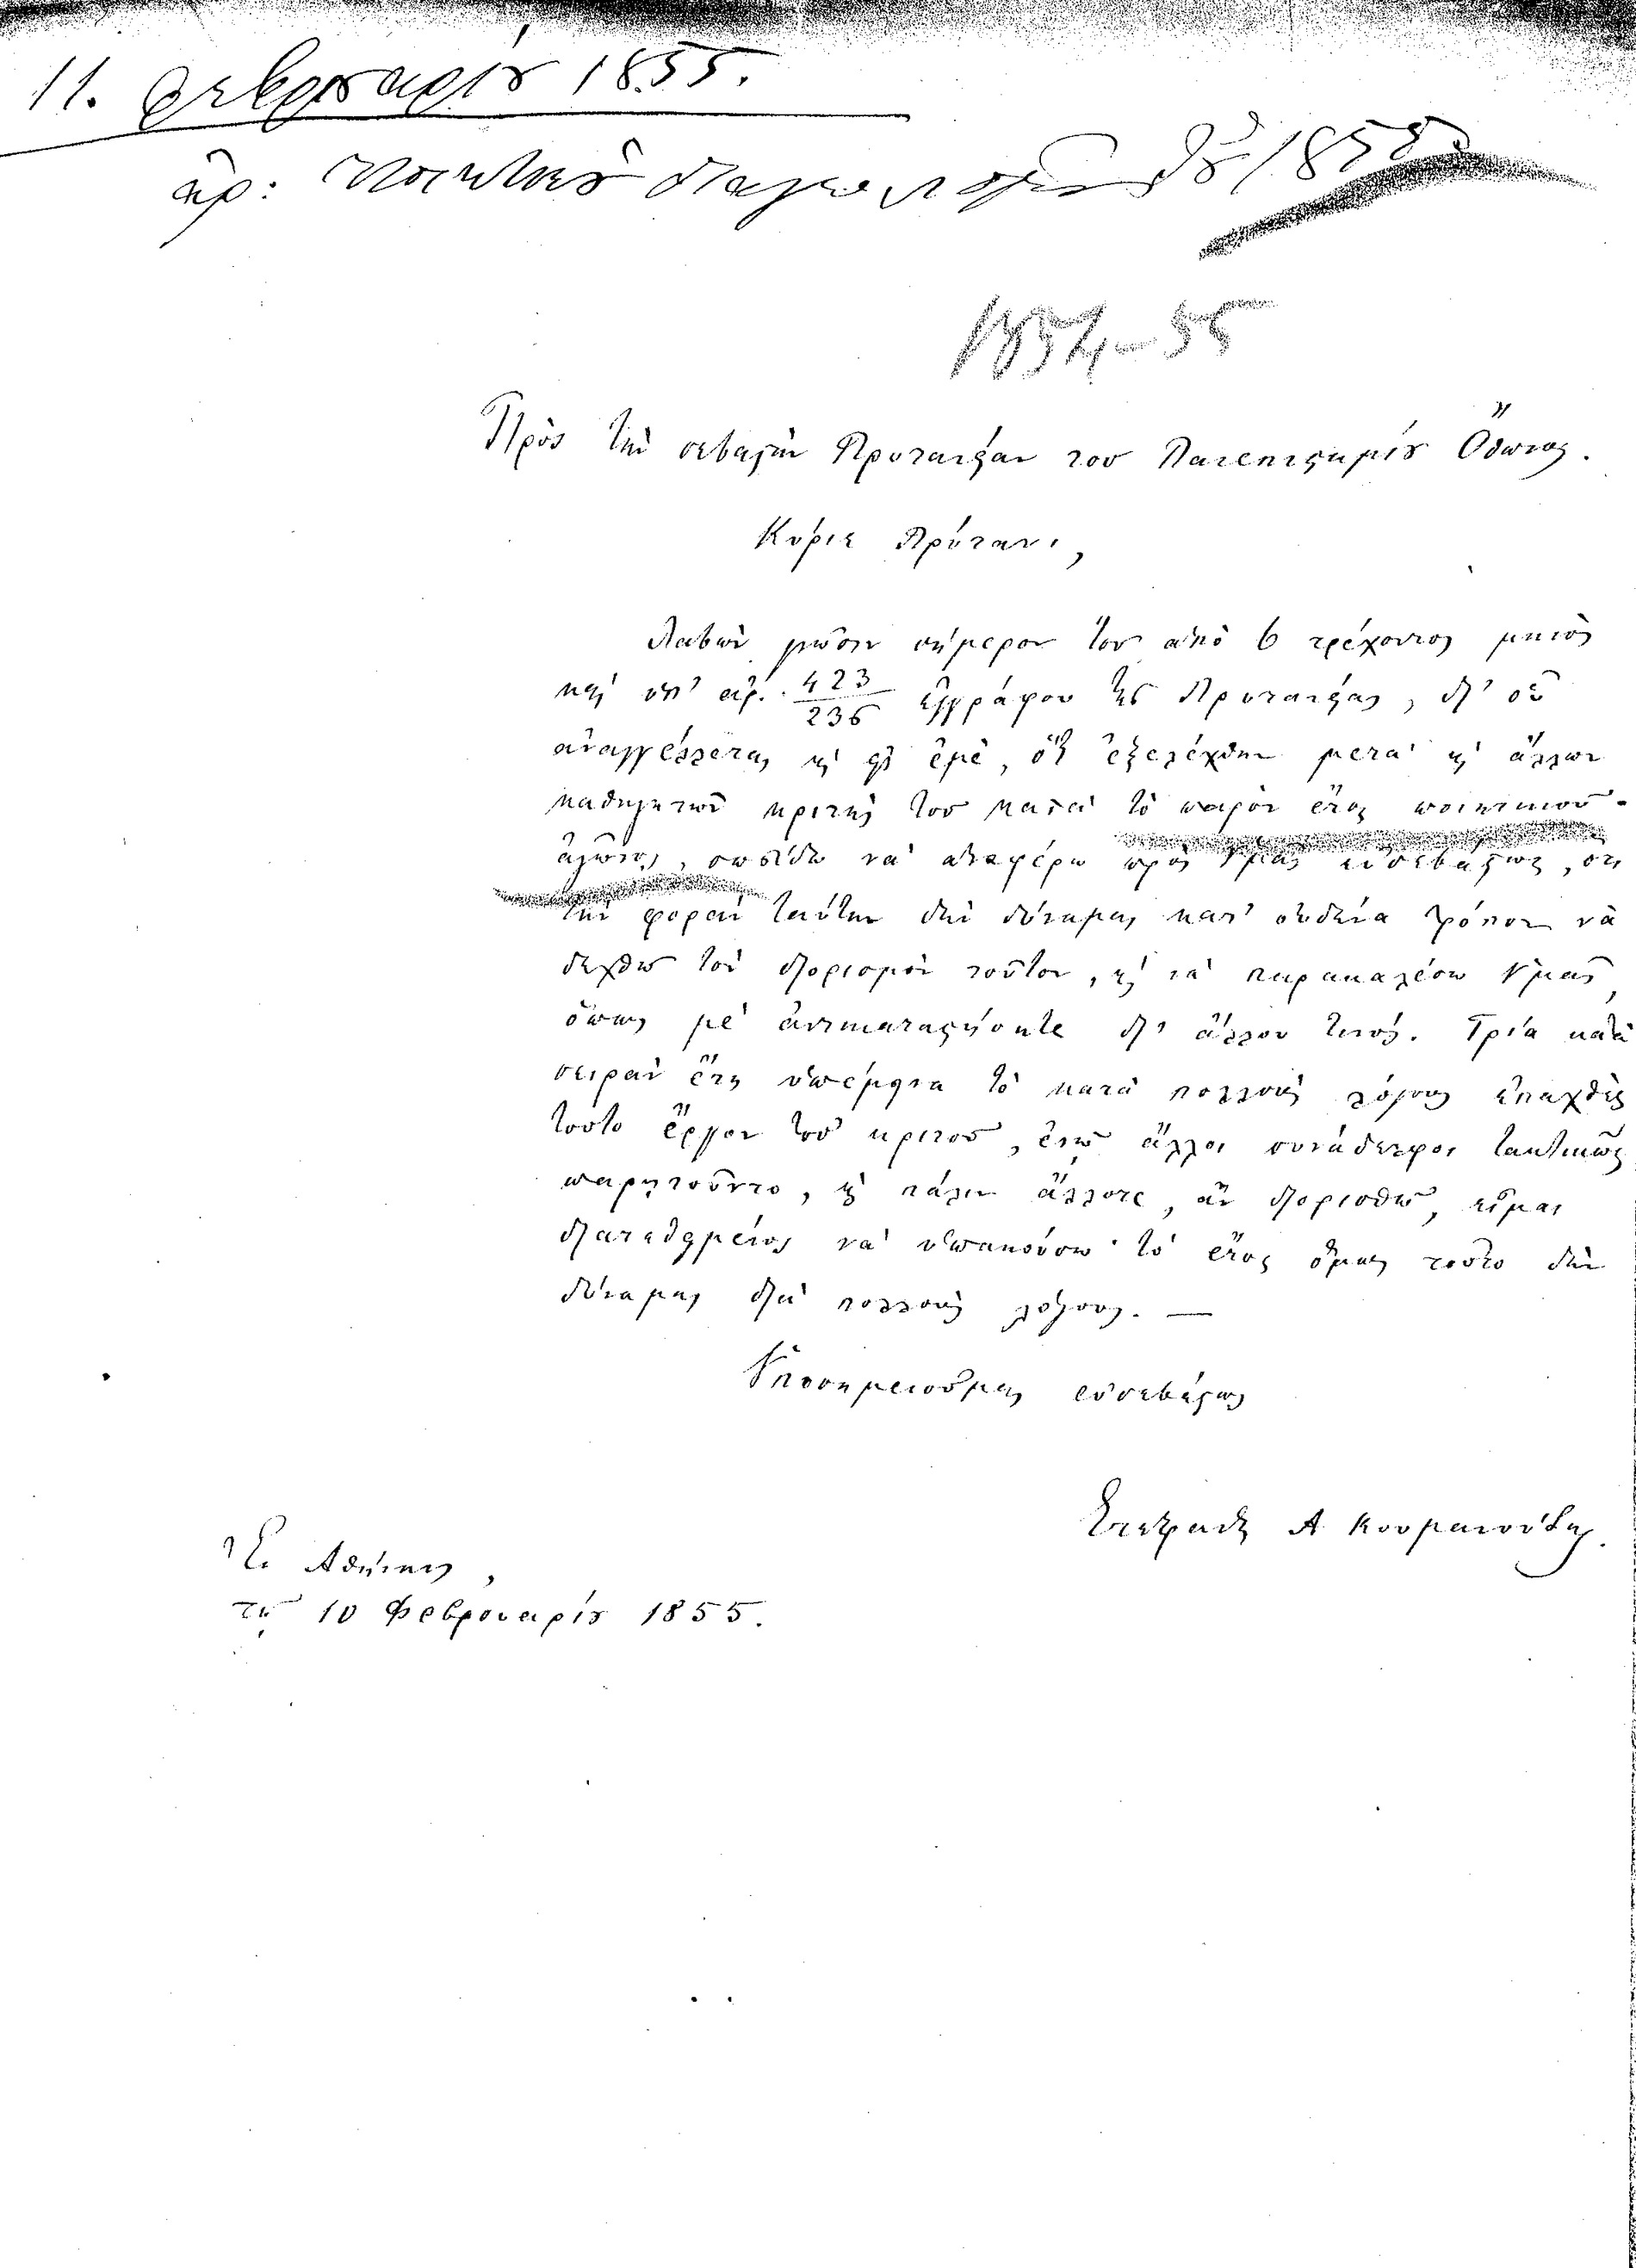 11. Φεβρουαρίου 1855.
ἀρ: Ποιητικοῦ διαγωνισμοῦ τοῦ 1855
1854-55
Πρὸς τὴν σεβαστὴν Πρυτανείαν του Πανεπιστημίου Ὄθωνος.
Κύριε Πρύτανι,
Λαβὼν γνῶσιν σήμερον τοῦ ἀπὸ 6 τρέχοντος μηνὸς
καὶ ὑπ' ἀρ. 423/236 ἐγγράφου τῆς Πρυτανείας, δι' οὗ
ἀναγγέλλεται καὶ εἰς ἐμὲ, ὅτι ἐξελέχθην μετὰ καὶ ἄλλων
καθηγητῶν κριτὴς τοῦ κατὰ τὸ παρὸν ἔτος ποιητικοῦ
ἀγῶνος, σπεύδω νὰ ἀναφέρω πρὸς Ὑμᾶς εὐσεβάστως, ὅτι
τὴν φορὰν ταύτην δὲν δύναμαι κατ' οὐδένα τρόπον νὰ
δεχθῶ τὸν διορισμὸν τοῦτον, καὶ νὰ παρακαλέσω Ὑμᾶς,
ὅπως μὲ ἀντικαταστήσητε δι' ἄλλου τινός. Τρία κατὰ
σειρὰν ἔτη ὑπέμεινα τὸ κατὰ πολλοὺς λόγους ἐπαχθὲς
τοῦτο ἔργον τοῦ κριτοῦ, ἐνῷ ἄλλοι συνάδελφοι τακτικῶς
παρῃτοῦντο, καὶ πάλιν ἄλλοτε, ἂν διορισθῶ, εἶμαι
διατεθημένος νὰ ὑπακούσω· τὸ ἔτος ὅμως τοῦτο δὲν
δύναμαι διὰ πολλοὺς λόγους. —
Ὑποσημειοῦμαι εὐσεβάστως
Στέφανος Α Κουμανούδης.
Ἐν Ἀθήναις,
τῇ 10 Φεβρουαρίου 1855.